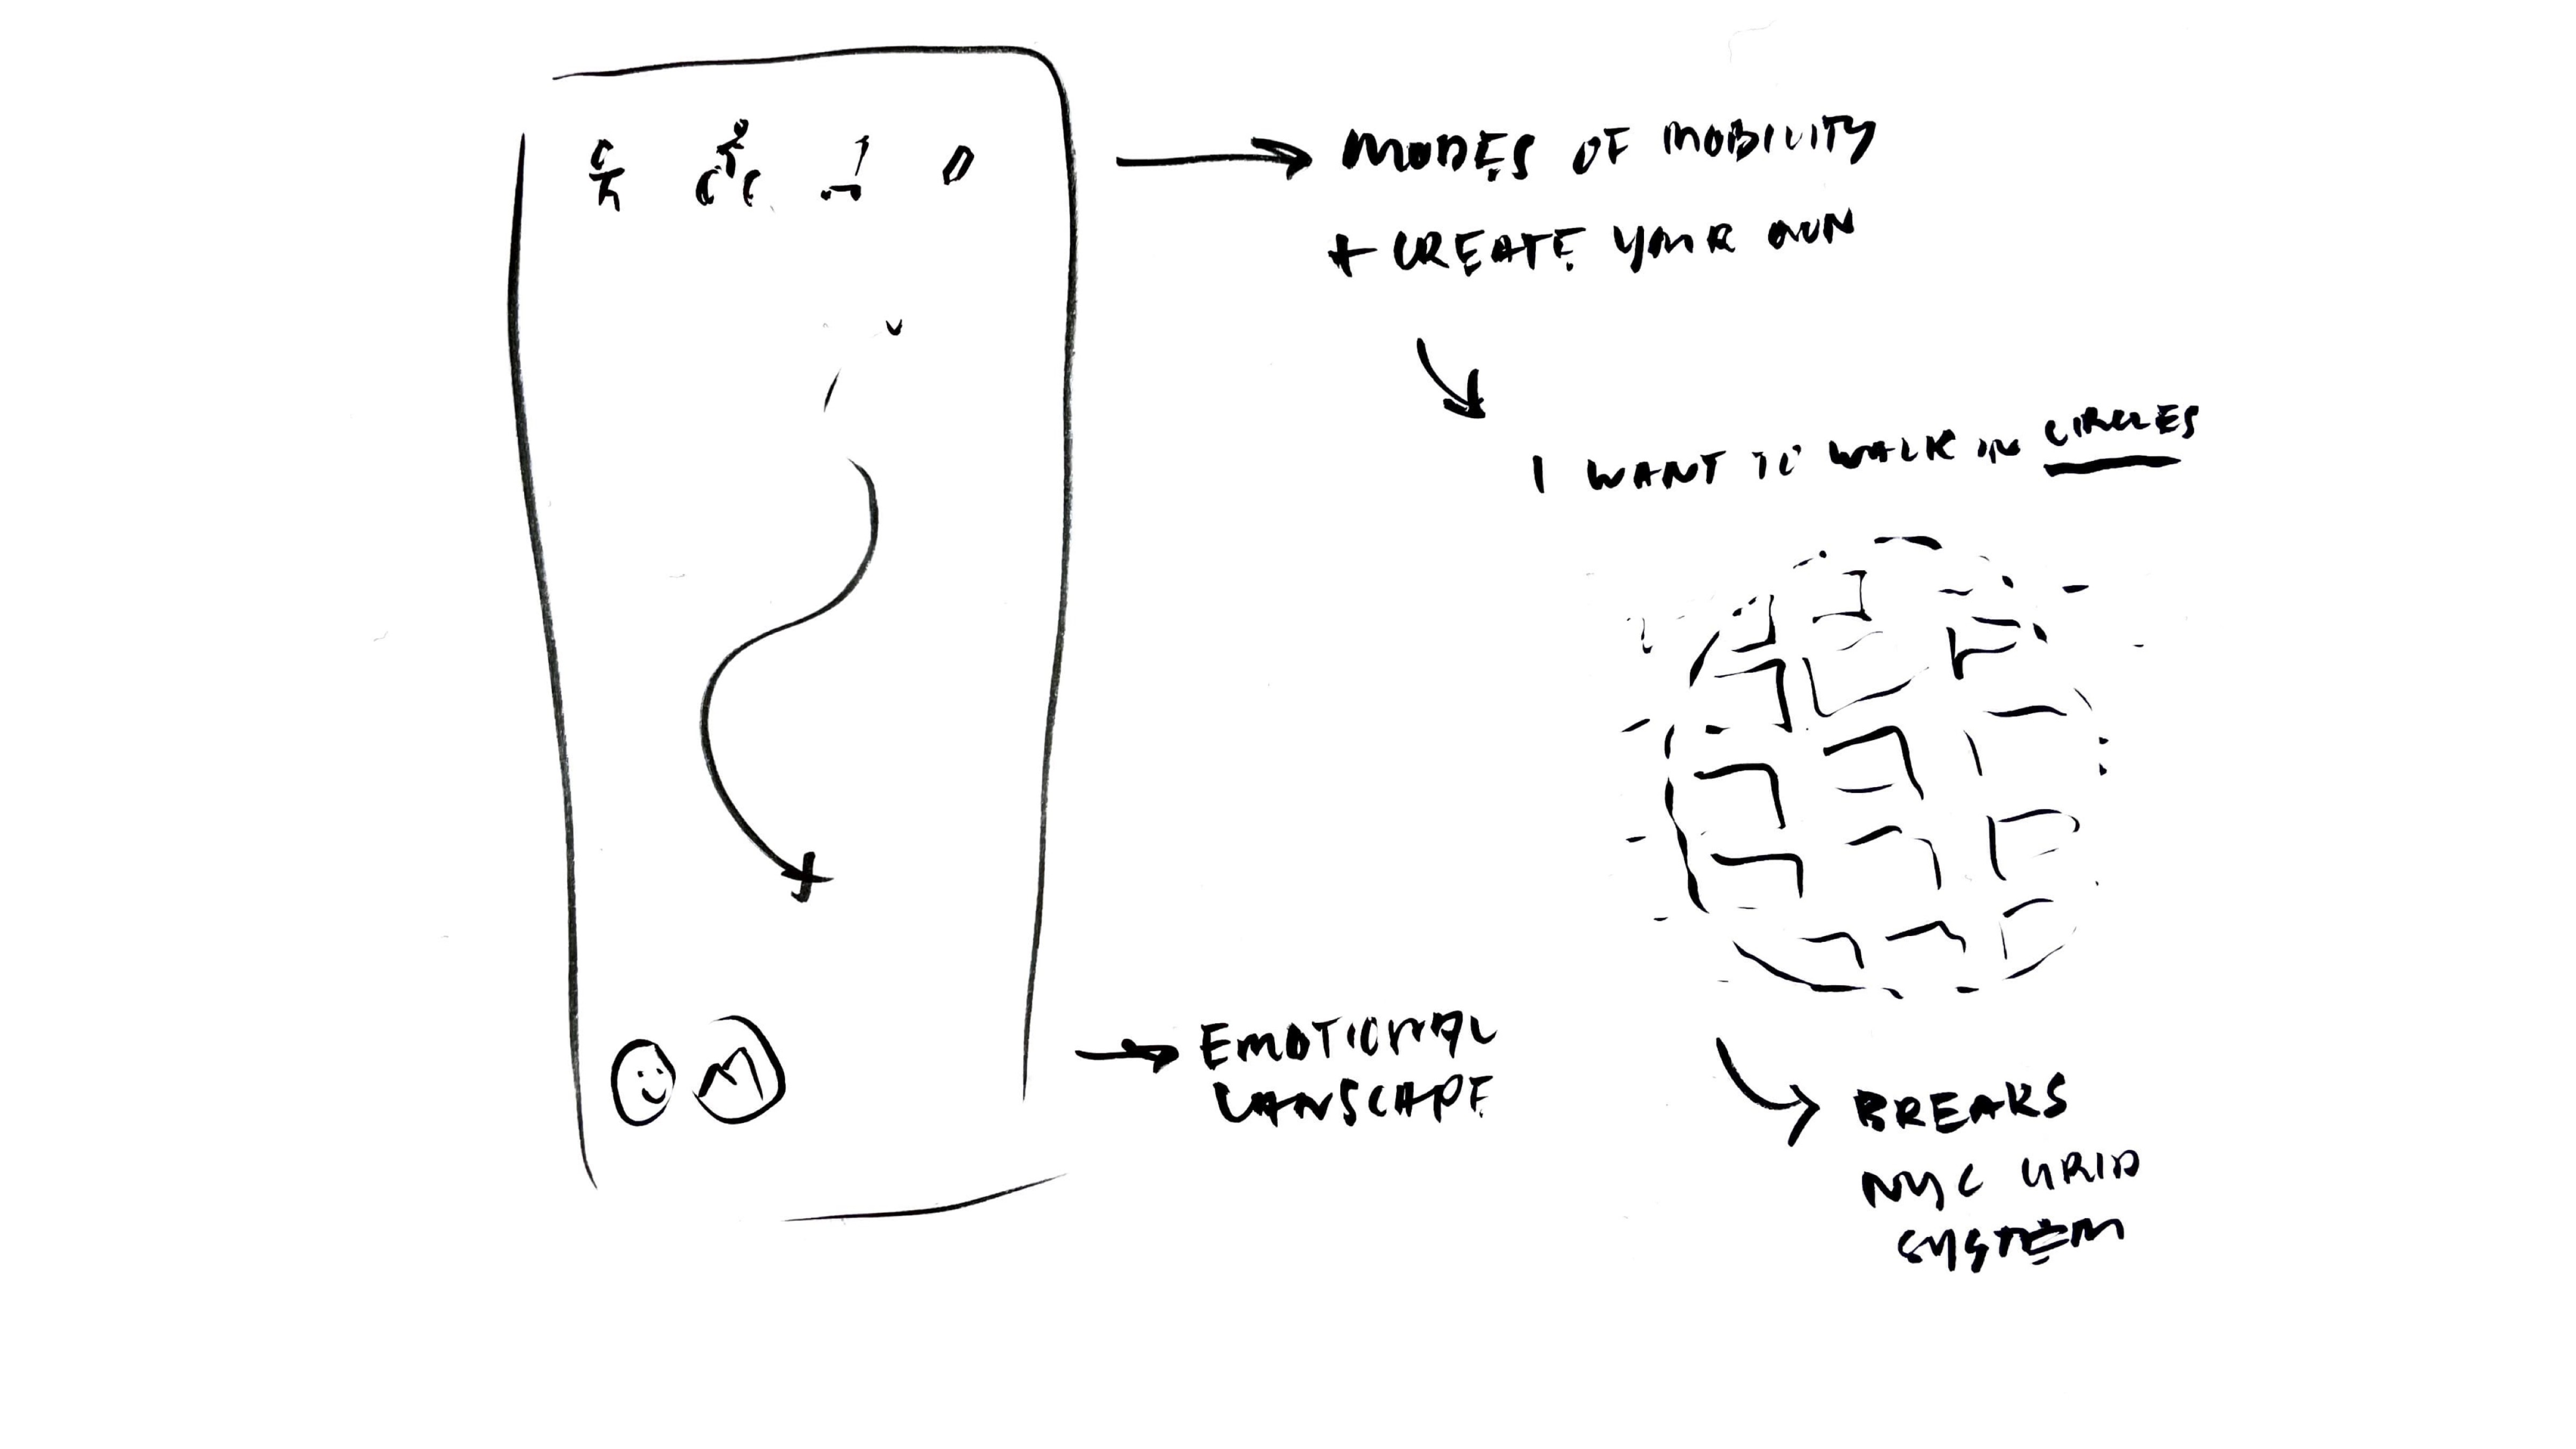 MODES OF MOBILITY
+ CREATE YOUR OWN
I WANT TO WALK IN CIRCLES
EMOTIONAL
LANSCAPE
BREAKS
NYC GRID
SYSTEM